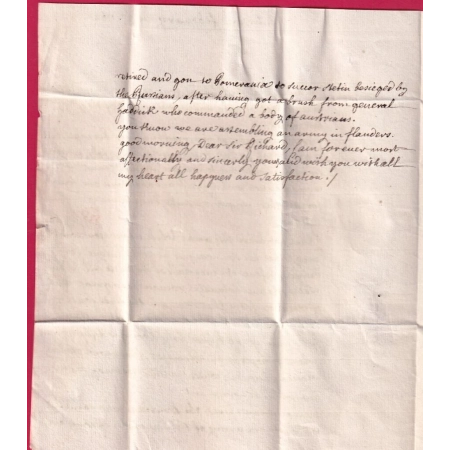 retired and gon to Pomerania to succor Stetin besieged by
the Russians, after having got a brush from general
hadick who commanded a body of austrians.
you know we are assembling an army in flanders.
good morning, Dear Sir Richard, I am forever most
affectionally and sincerly yours and wish you with all
my heart all happness and satisfaction ./